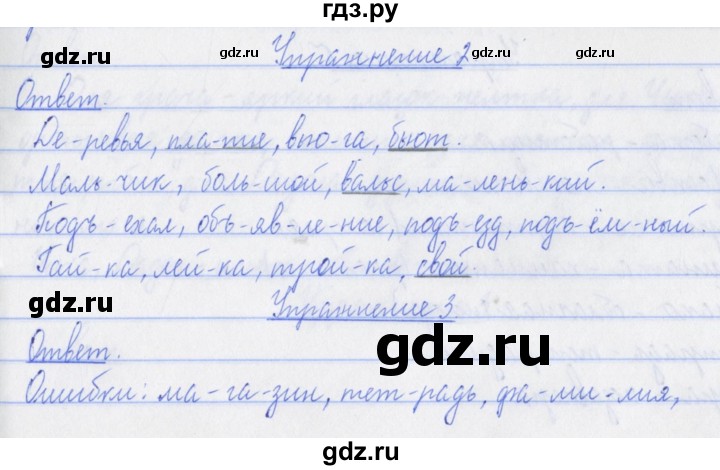 гдз.ру
gdz.ru gdz.ru gdz.ru
Упражнение 2.
Ответ.
gdz.ru gdz.ru gdz.ru
Де-ревья, пла-тье, вью-га, бьют.
Маль-чик, боль-шой, вальс, ма-лень-кий.
gdz.ru gdz.ru
Подъ-ехал, объ-яв-ле-ние, подъ-езд, подъ-ём-ный.
Гай-ка, лей-ка, трой-ка, свой.
gdz.ru gdz.ru
Упражнение 3
Ответ.
gdz.ru
Ошибки: ма-га-зин, тет-радь, фа-ми-лия,
gdz.ru gdz.ru